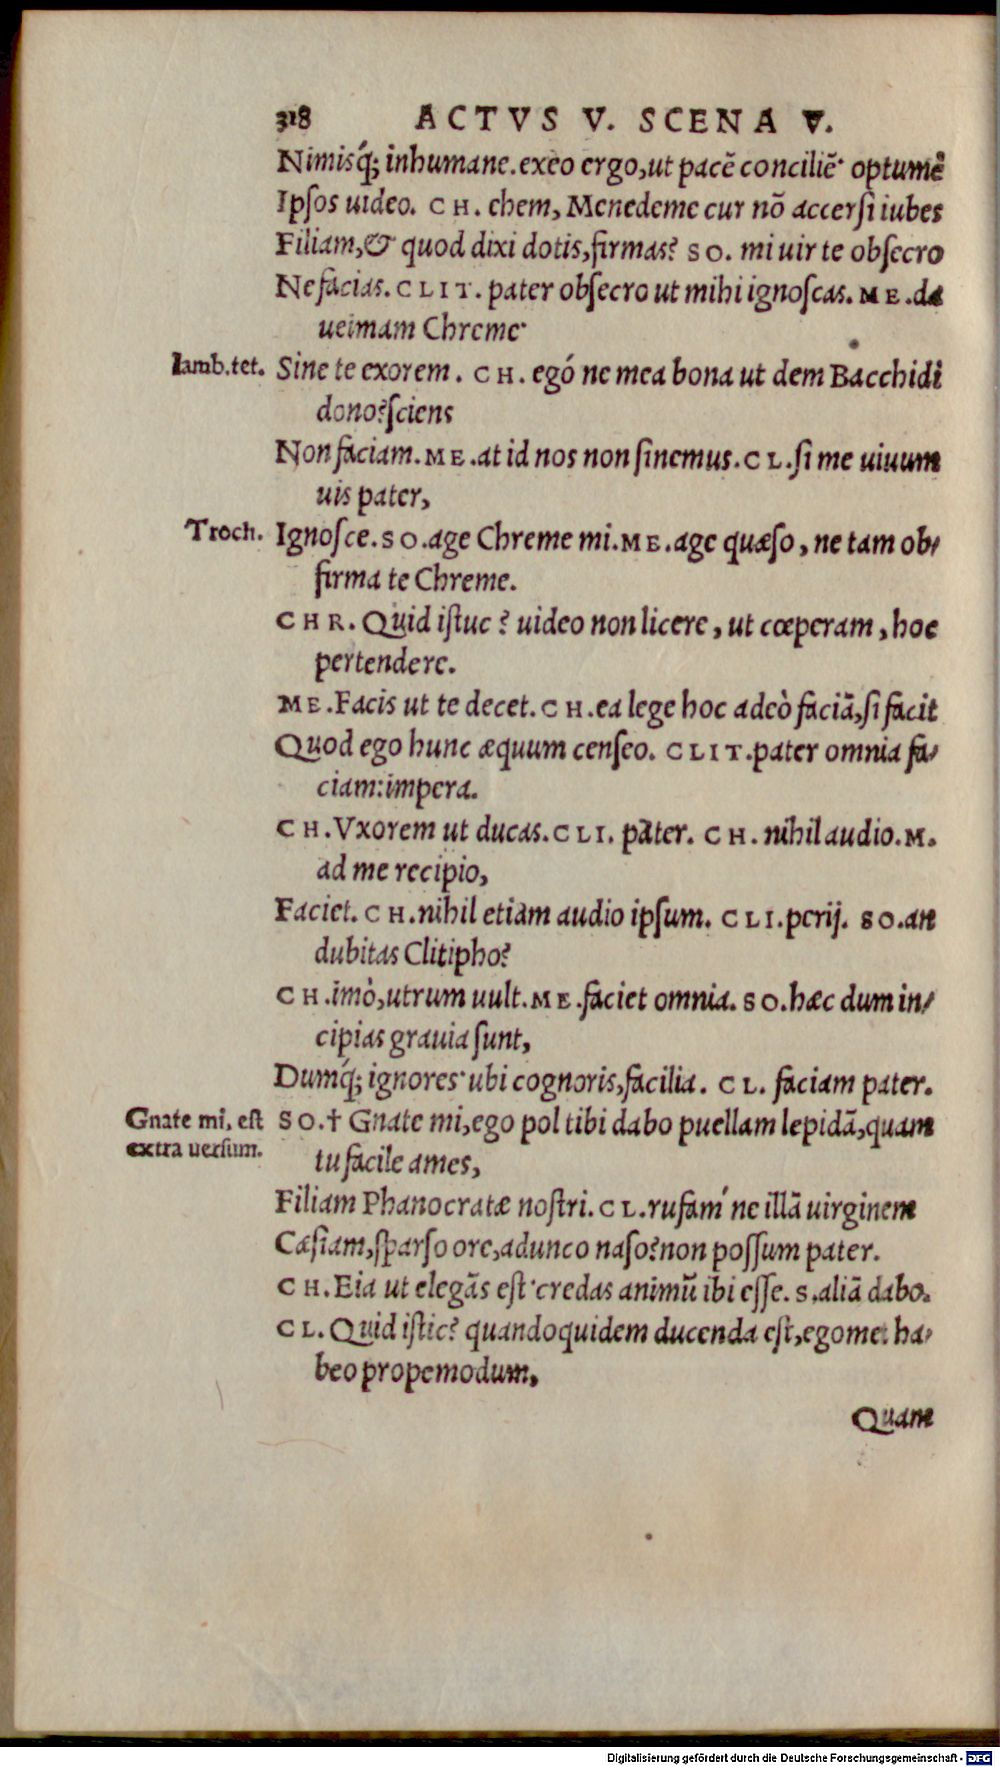 318 ACTVS V. SCENA V.
Nimisq́; inhumane. exeo ergo, ut pacẽ conciliẽ· optumẽ
Ipsos uideo. CH. ehem, Menedeme cur nõ accersi iubes
Filiam, & quod dixi dotis, firmas? SO. mi uir te obsecro
Ne facias. CLIT. pater obsecro ut mihi ignoscas. ME. da
ueimam Chreme·
Iamb. tet. Sine te exorem. CH. egó ne mea bona ut dem Bacchidi
dono? sciens
Non faciam. ME. at id nos non sinemus. CL. si me uiuum
uis pater,
Troch. Ignosce. SO. age Chreme mi. ME. age quæso, ne tam ob-
firma te Chreme.
CHR. Quid istuc? uideo non licere, ut cœperam, hoc
pertendere.
ME. Facis ut te decet. CH. ea lege hoc adeò faciã, si facit
Quod ego hunc æquum censeo. CLIT. pater omnia fa-
ciam: impera.
CH. Vxorem ut ducas. CLI. pater. CH. nihil audio. M.
ad me recipio,
Faciet. CH. nihil etiam audio ipsum. CLI. perij. SO. an
dubitas Clitipho?
CH. imò, utrum uult. ME. faciet omnia. SO. hæc dum in-
cipias grauia sunt,
Dumq́; ignores· ubi cognoris, facilia. CL. faciam pater.
Gnate mi, est SO. † Gnate mi, ego pol tibi dabo puellam lepidã, quam
extra uersum. tu facile ames,
Filiam Phanocratæ nostri. CL. rufam´ ne illã uirginem
Cæsiam, sparso ore, adunco naso? non possum pater.
CH. Eia ut elegãs est· credas animũ ibi esse. S. aliã dabo.
CL. Quid istic? quandoquidem ducenda est, egomet ha-
beo propemodum,
Quam
Digitalisierung gefördert durch die Deutsche Forschungsgemeinschaft - DFG